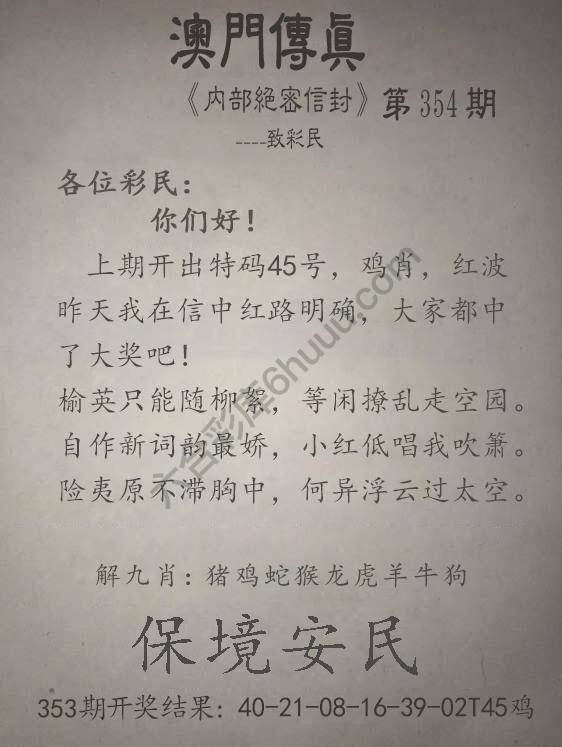 澳門傳眞
《内部絕密信封》第354期
----致彩民
各位彩民：
你们好！
上期开出特码45号，鸡肖，红波
昨天我在信中红路明确，大家都中
了大奖吧！
榆英只能随柳絮，等闲撩乱走空园。
自作新词韵最娇，小红低唱我吹箫。
险夷原不滞胸中，何异浮云过太空。
六合彩库6huuu.com
解九肖：猪鸡蛇猴龙虎羊牛狗
保境安民
353期开奖结果：40-21-08-16-39-02T45鸡